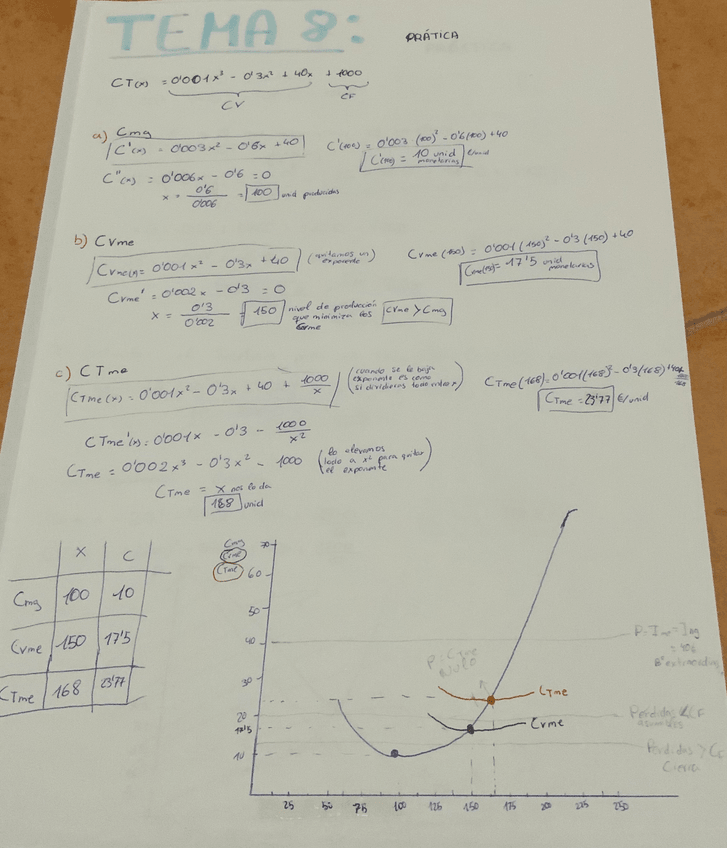 TEMA 8:
PRÁTICA
CT(x) = 0'001x³ - 0'3x² + 40x + 1000
CV
CF
a) Cmg
C'(x) = 0'003x² - 0'6x + 40
C'(100) = 0'003 (100)² - 0'6(100) + 40
C'(mg) = 10 unid monetarias €/unid
C''(x) = 0'006x - 0'6 = 0
x = 0'6 / 0'006 = 100 unid producidas
b) CVme
CVme(x) = 0'001x² - 0'3x + 40 (quitamos un exponente)
CVme(150) = 0'001(150)² - 0'3(150) + 40
Cvme(150) = 17'5 unid monetarias
CVme' = 0'002x - 0'3 = 0
x = 0'3 / 0'002 = 150 nivel de producción que minimiza los CVme
CVme > Cmg
c) CTme
CTme(x) = 0'001x² - 0'3x + 40 + 1000/x (cuando se le baja exponente es como si dividieras todo entre x)
CTme(168) = 0'001(168)² - 0'3(168) + 40
CTme = 23'77 €/unid
CTme'(x) = 0'001x - 0'3 - 1000/x²
CTme = 0'002x³ - 0'3x² - 1000 (lo elevamos todo a x² para quitar el exponente)
CTme = x nos lo da
168 unid
X C
Cmg 100 10
CVme 150 17'5
CTme 168 23'77
Cmg
CVme
CTme
70
60
50
40
30
20
17'5
10
CTme
CVme
Pérdidas < CF
Pérdidas > CF
Cierra
25 50 75 100 125 150 175 200 225 250